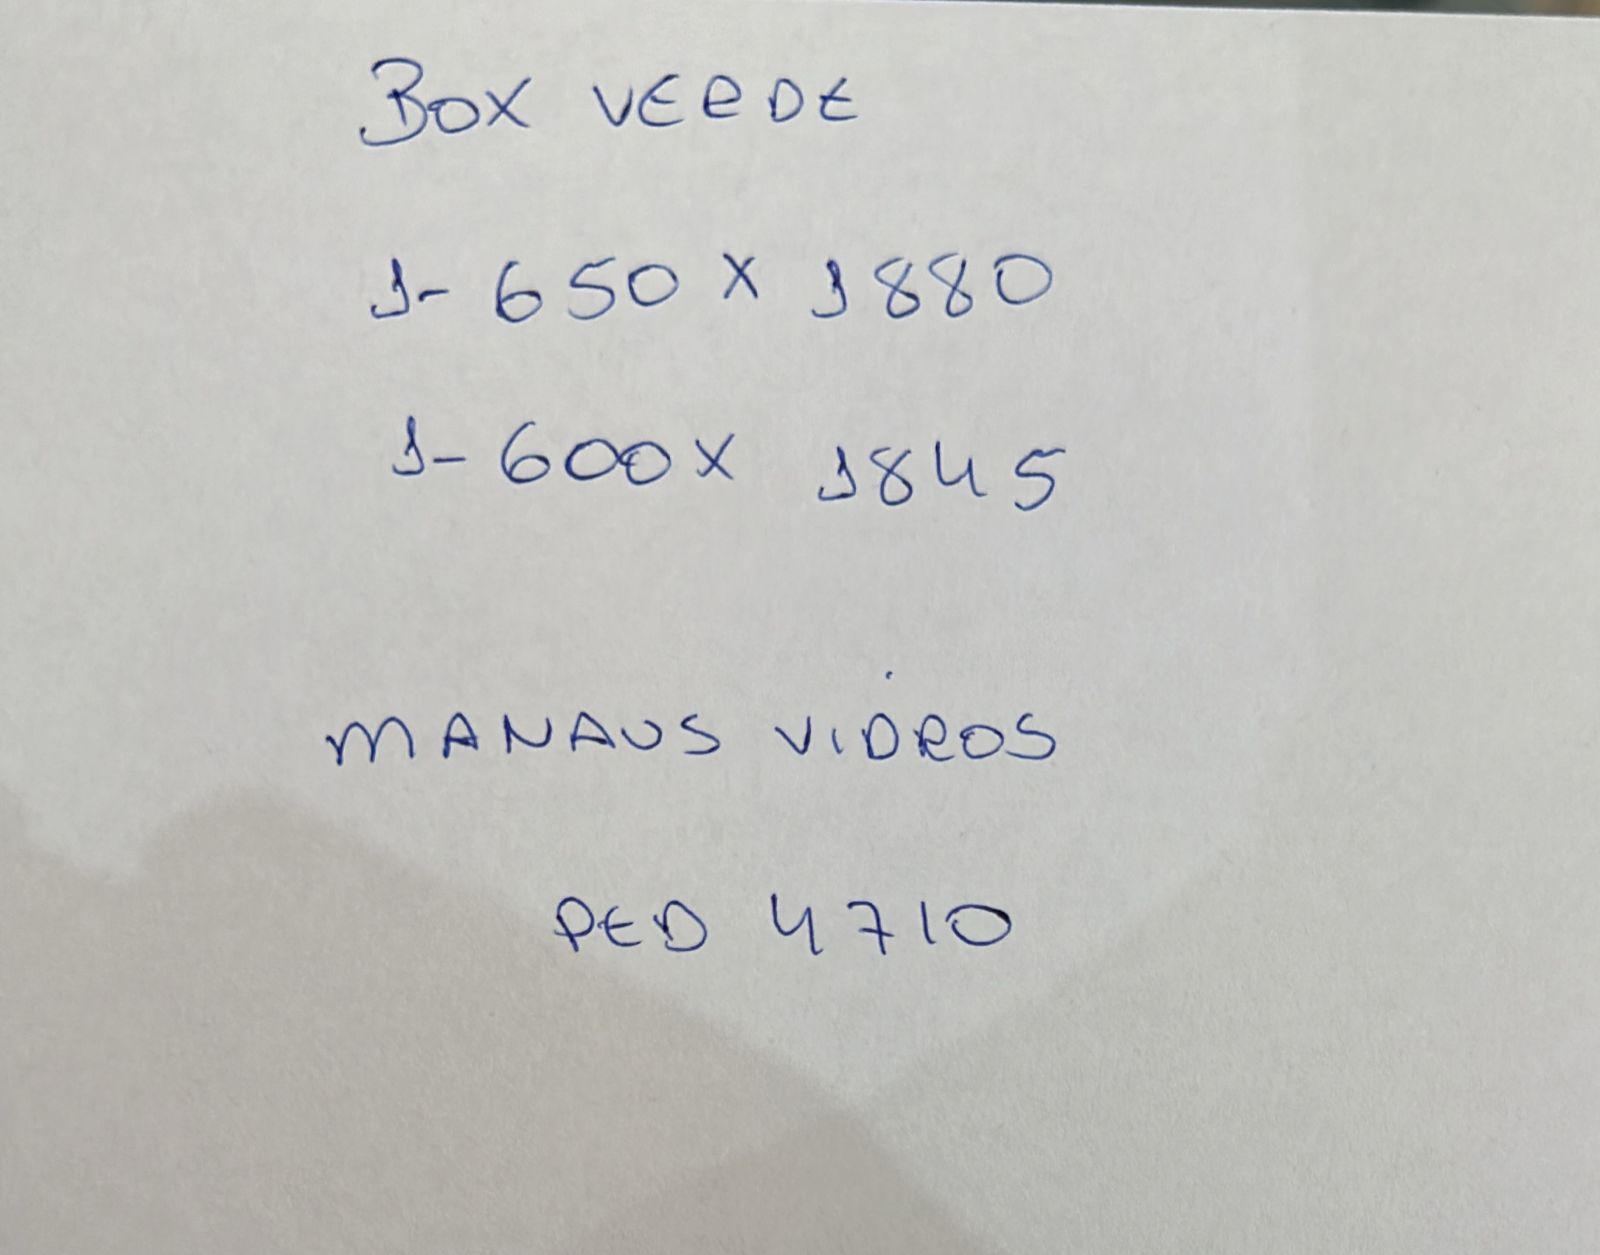 BOX VERDE
1- 650 X 1880
1- 600 X 1845
MANAUS VIDROS
PED 4710